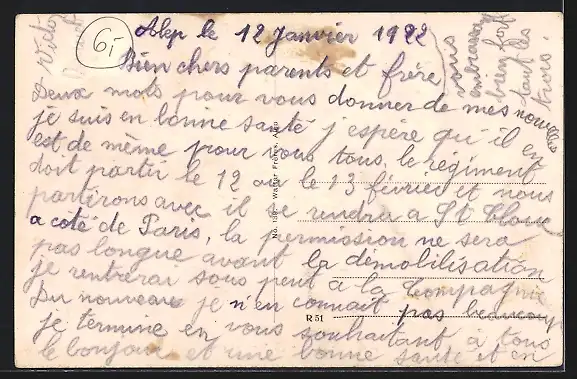 6,-
Alep le 12 Janvier 1922
Bien chers parents et frère
Deux mots pour vous donner de mes nouvelles
je suis en bonne santé j'espère qu'il en
est de même pour vous tous, le regiment
doit partir le 12 ou le 13 février et nous
partirons avec il se rendra a St Cloud
a coté de Paris, la permission ne sera
pas longue avant la démobilisation
je rentrerai sous peut a la Compagnie
Du nouveau je n'en connait pas beaucoup
je termine en vous souhaitant à tous
le bonjour et une bonne santé et en
vous
embrassant
bien fort
tout les
trois.
Victor
No. 139 - Wattar Frères, Alep
R 51